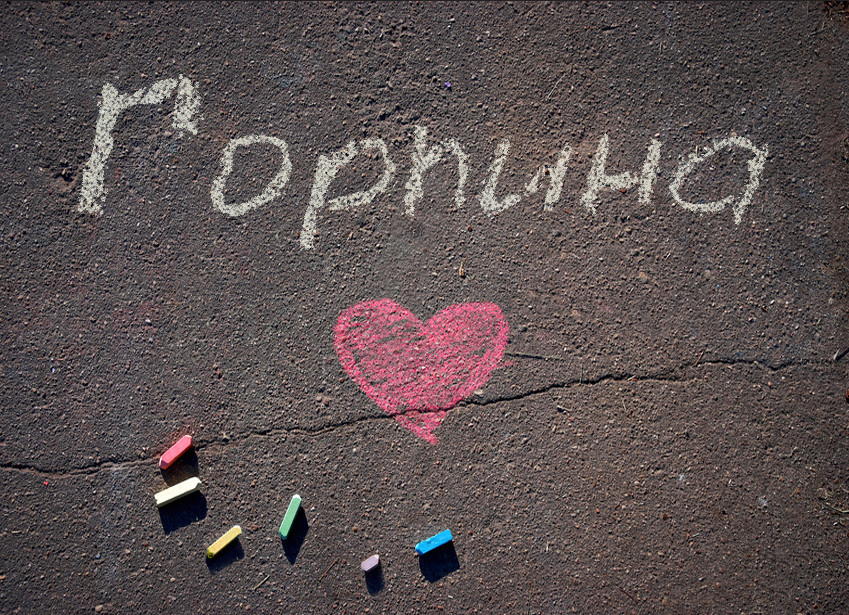 Горпина